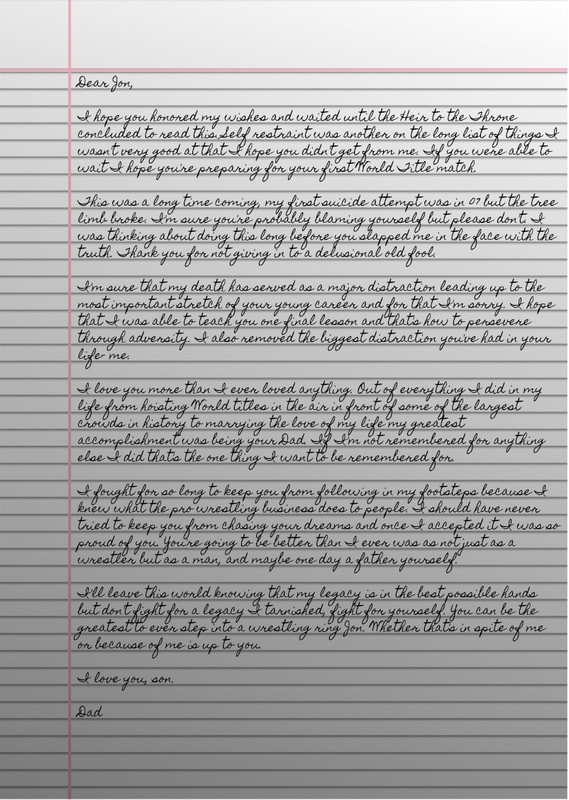 Dear Jon,
I hope you honored my wishes and waited until the Heir to the Throne
concluded to read this. Self restraint was another on the long list of things I
wasn't very good at that I hope you didn't get from me. If you were able to
wait I hope you're preparing for your first World Title match.
This was a long time coming, my first suicide attempt was in 07 but the tree
limb broke. I'm sure you're probably blaming yourself but please don't. I
was thinking about doing this long before you slapped me in the face with the
truth. Thank you for not giving in to a delusional old fool.
I'm sure that my death has served as a major distraction leading up to the
most important stretch of your young career and for that I'm sorry. I hope
that I was able to teach you one final lesson and that's how to persevere
through adversity. I also removed the biggest distraction you've had in your
life- me.
I love you more than I ever loved anything. Out of everything I did in my
life from hoisting World titles in the air in front of some of the largest
crowds in history to marrying the love of my life my greatest
accomplishment was being your Dad. If I'm not remembered for anything
else I did that's the one thing I want to be remembered for.
I fought for so long to keep you from following in my footsteps because I
knew what the pro wrestling business does to people. I should have never
tried to keep you from chasing your dreams and once I accepted it I was so
proud of you. You're going to be better than I ever was as not just as a
wrestler but as a man, and maybe one day a father yourself.
I'll leave this world knowing that my legacy is in the best possible hands
but don't fight for a legacy I tarnished, fight for yourself. You can be the
greatest to ever step into a wrestling ring Jon. Whether that's in spite of me
or because of me is up to you.
I love you, son.
Dad